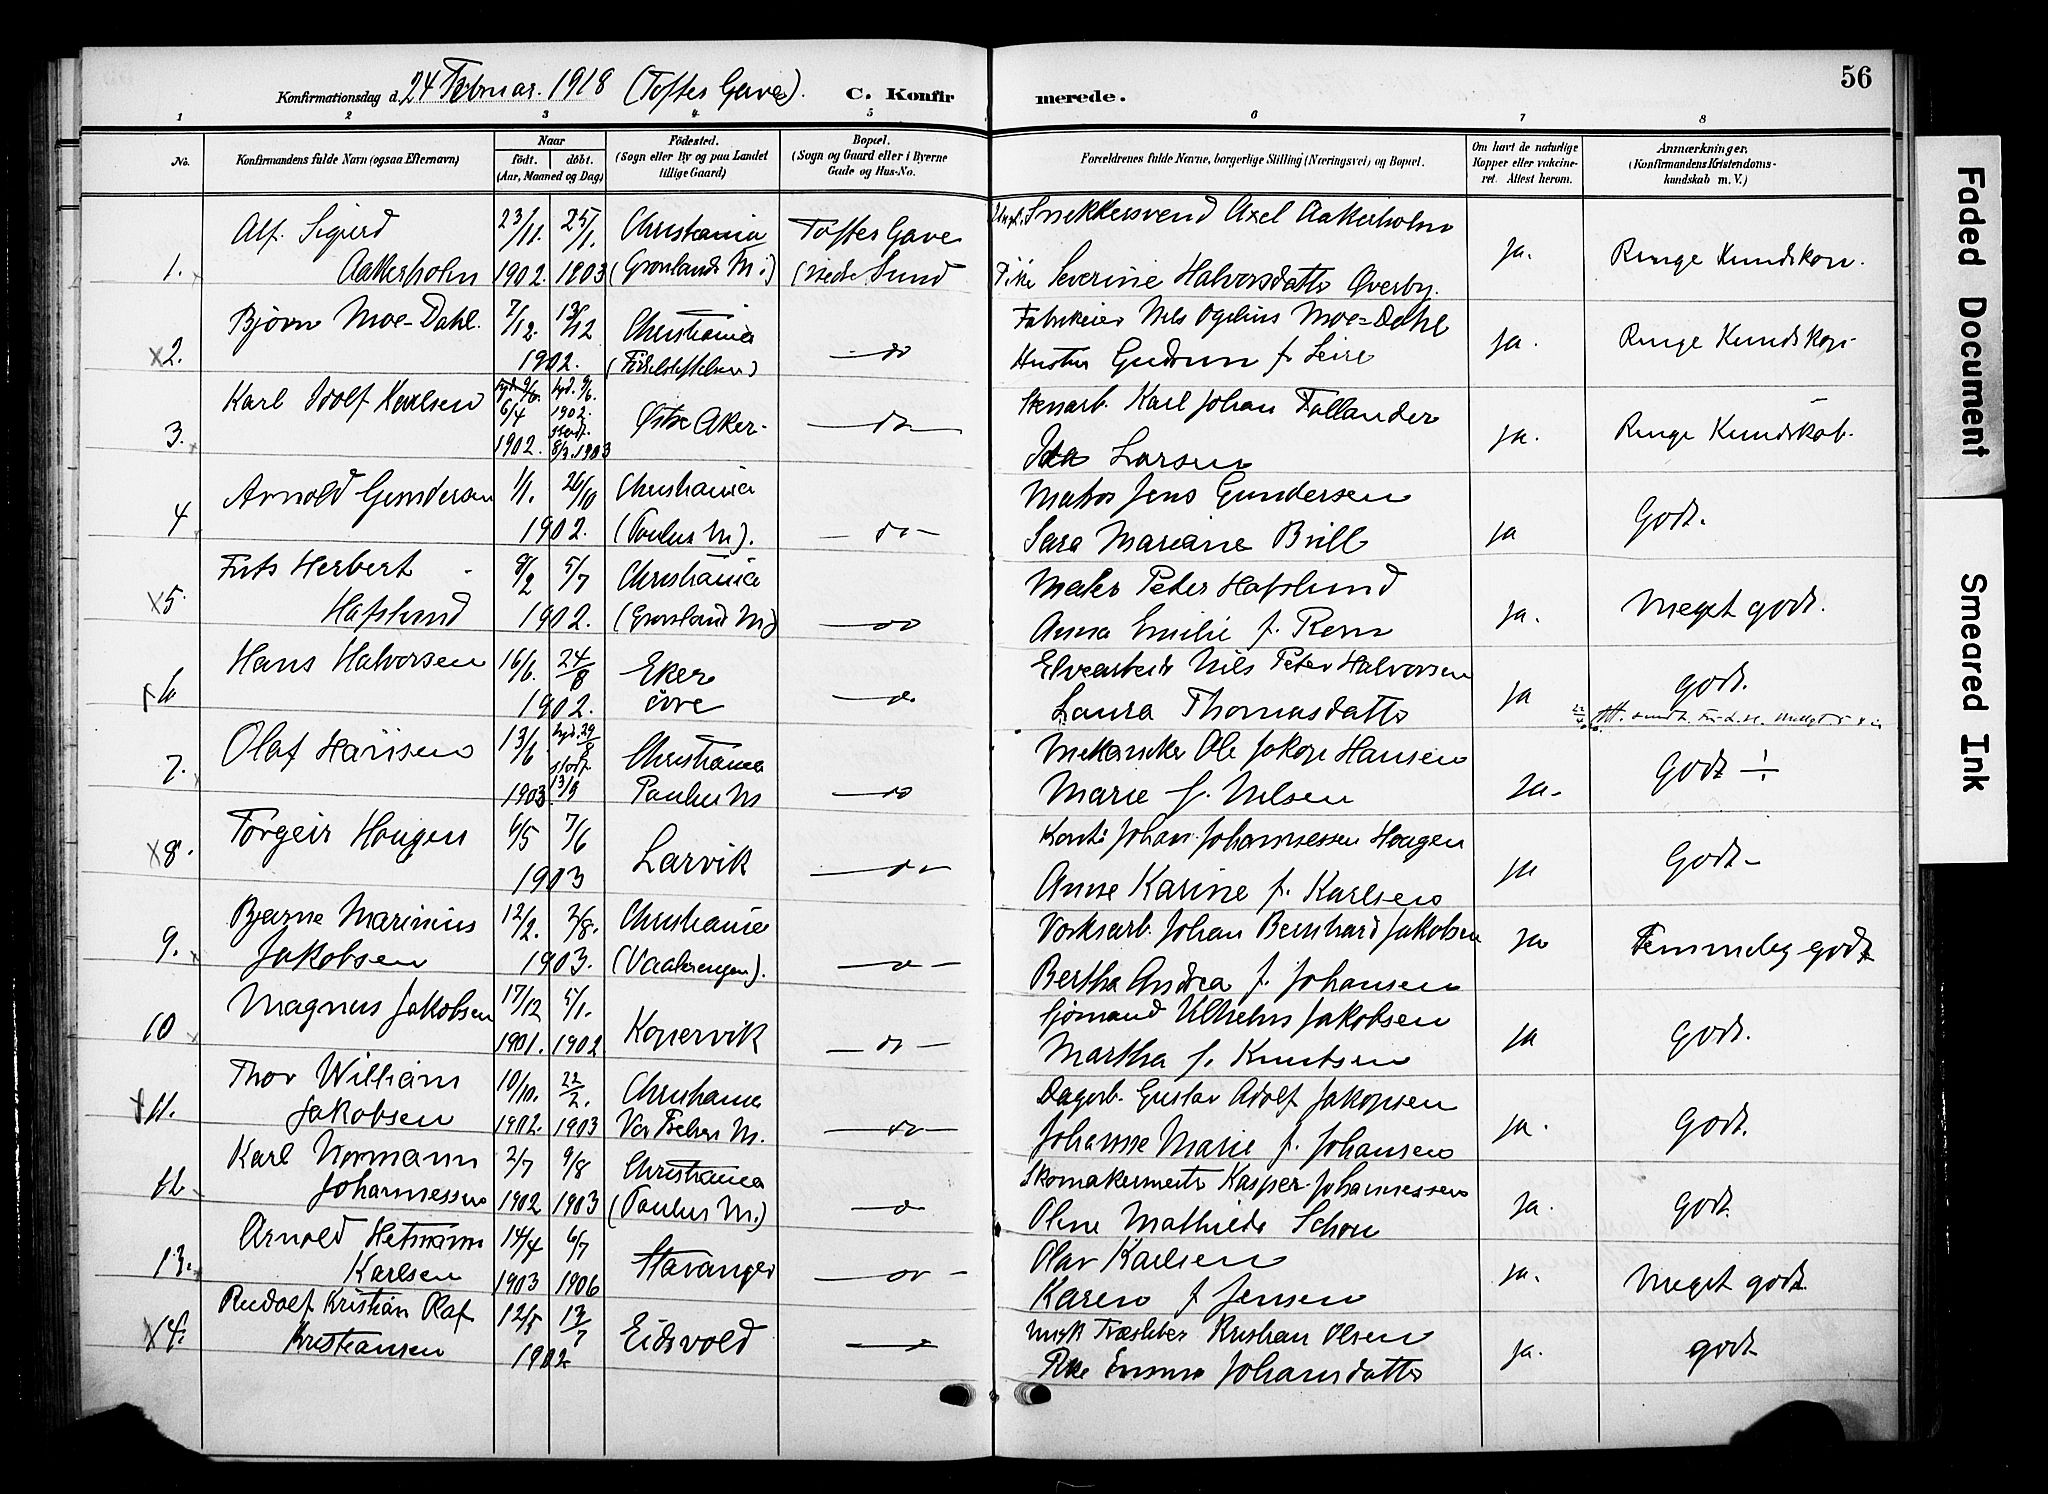 Konfirmationsdag d. 24 Februar. 1918 (Toftes Gave). C. Konfirmerede. 56
1 2 3 4 5 6 7 8
No.
Konfirmandens fulde Navn (ogsaa Efternavn)
Naar
født. døbt.
(Aar, Maaned og Dag)
Fødested.
(Sogn eller By og paa Landet
tillige Gaard)
Bopæl.
(Sogn og Gaard eller i Byerne
Gade og Hus-No.
Forældrenes fulde Navne, borgerlige Stilling (Næringsvei) og Bopæl.
Om havt de naturlige
Kopper eller vaccine-
ret. Attest herom.
Anmærkninger.
(Konfirmandens Kristendoms-
kundskab m. V.)
Alf. Sigurd 23/11. 25/1. Christiania Toftes Gave Snekkersvend Axel Aakerholm
1. Aakerholm 1902. 1903 (Grønlands M.) Severine Halvorsdatter Øverby. Ja. Ringe Kundskab.
Bjørn Moe-Dahl. 7/12. 13/12 Christiania Nils Ogelius Moe-Dahl
x2. 1902. do Hustru Gudrun f. Leire Ja. Ringe Kundskap.
Karl Adolf Karlsen 6/4 1902. Karl Johan Follander
3. 1902. 8/3.1903 Østre Aker. do Ida Larsen Ja. Ringe Kundskab.
Arnold Gundersen 1/1. 26/10 Christiania Matros Jens Gundersen
4 1902. (Paulus M). do Sara Mariane Brill Ja Godt.
Frits Herbert 8/2 5/7 Christiania Maler Peter Hafslund
x5. Hafslund 1902. (Grønland M) do Anna Emilie f. Rem Ja. Meget godt.
Hans Halvorsen 16/6. 24/8 Eker Elvearbeider Nils Peter Halvorsen
x6 1902. øvre do Laura Thomasdatter Ja Godt.
Olaf Hansen 13/6 29/8 Christiania Mekaniker Ole Jakop Hansen
7. 1903 13/9 Paulus M do Marie f. Nilsen Ja. Godt ÷
Torgeir Hougen 6/5 7/6 Johan Johannessen Hougen
x8. 1903 Larvik do Anne Karine f. Karlsen Ja Godt
Bjarne Marinius 12/2. 2/8. Christiania Verksarb. Johan Bernhard Jakobsen
9. Jakobsen 1903. (Vaalerengen). do Bertha Andrea f. Johansen Ja Temmelig godt
Magnus Jakobsen 17/12 5/1. Sjømand Vilhelm Jakobsen
10 1901. 1902 Kopervik do Martha f. Knutsen Ja Godt.
Thor William 10/10. 22/2. Christiania Dagarb. Gustav Adolf Jakopsen
x11. Jakobsen 1902. 1903 Vor Frelsers M. do Johanne Marie f. Johansen Ja. Godt.
Karl Normann 2/7 9/8 Christiania Skomakermester Kasper Johannessen
12 Johannessen 1902 1903 (Paulus M.) do Oline Mathilde Schou Ja. Godt.
Arnold Hermann 14/4 6/7 Olav Karlsen
13. Karlsen 1903 1906 Stavanger do Karen f Jensen Ja. Meget godt
Rudolf Kristian Olaf 12/5 13/7 Kristian Olsen
x14. Kristiansen 1902 Eidsvold do Pike Emma Johansdatter Ja. godt
Faded Document
Smeared Ink